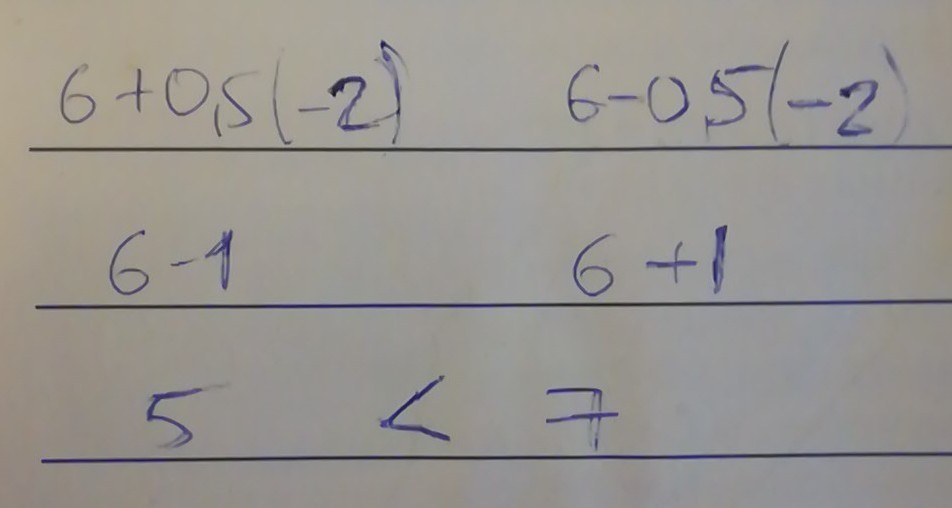 6+0,5(-2) 6-0,5(-2)
6-1 6+1
5 < 7